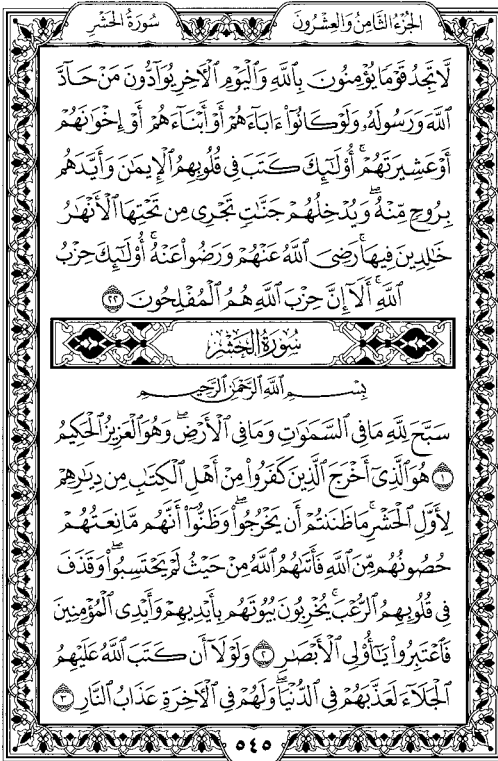 الجُزءُ الثَّامِنُ وَالعِشْرُونَ
سُورَةُ الحَشْرِ
لَّا تَجِدُ قَوْمًا يُؤْمِنُونَ بِٱللَّهِ وَٱلْيَوْمِ ٱلْأَخِرِ يُوَآدُّونَ مَنْ حَآدَّ
ٱللَّهَ وَرَسُولَهُۥ وَلَوْ كَانُوٓا۟ ءَابَآءَهُمْ أَوْ أَبْنَآءَهُمْ أَوْ إِخْوَٰنَهُمْ
أَوْ عَشِيرَتَهُمْ ۚ أُو۟لَٰٓئِكَ كَتَبَ فِى قُلُوبِهِمُ ٱلْإِيمَٰنَ وَأَيَّدَهُم
بِرُوحٍ مِّنْهُ ۖ وَيُدْخِلُهُمْ جَنَّٰتٍ تَجْرِى مِن تَحْتِهَا ٱلْأَنْهَٰرُ
خَٰلِدِينَ فِيهَا ۚ رَضِىَ ٱللَّهُ عَنْهُمْ وَرَضُوا۟ عَنْهُ ۚ أُو۟لَٰٓئِكَ حِزْبُ
ٱللَّهِ ۚ أَلَآ إِنَّ حِزْبَ ٱللَّهِ هُمُ ٱلْمُفْلِحُونَ ٢٢
سُورَةُ الحَشْرِ
بِسْمِ ٱللَّهِ ٱلرَّحْمَٰنِ ٱلرَّحِيمِ
سَبَّحَ لِلَّهِ مَا فِى ٱلسَّمَٰوَٰتِ وَمَا فِى ٱلْأَرْضِ ۖ وَهُوَ ٱلْعَزِيزُ ٱلْحَكِيمُ
١ هُوَ ٱلَّذِىٓ أَخْرَجَ ٱلَّذِينَ كَفَرُوا۟ مِنْ أَهْلِ ٱلْكِتَٰبِ مِن دِيَٰرِهِمْ
لِأَوَّلِ ٱلْحَشْرِ ۚ مَا ظَنَنتُمْ أَن يَخْرُجُوا۟ ۖ وَظَنُّوٓا۟ أَنَّهُم مَّانِعَتُهُمْ
حُصُونُهُم مِّنَ ٱللَّهِ فَأَتَىٰهُمُ ٱللَّهُ مِنْ حَيْثُ لَمْ يَحْتَسِبُوا۟ ۖ وَقَذَفَ
فِى قُلُوبِهِمُ ٱلرُّعْبَ ۚ يُخْرِبُونَ بُيُوتَهُم بِأَيْدِيهِمْ وَأَيْدِى ٱلْمُؤْمِنِينَ
فَٱعْتَبِرُوا۟ يَٰٓأُو۟لِى ٱلْأَبْصَٰرِ ٢ وَلَوْلَآ أَن كَتَبَ ٱللَّهُ عَلَيْهِمُ
ٱلْجَلَآءَ لَعَذَّبَهُمْ فِى ٱلدُّنْيَا ۖ وَلَهُمْ فِى ٱلْأَخِرَةِ عَذَابُ ٱلنَّارِ ٣
٥٤٥